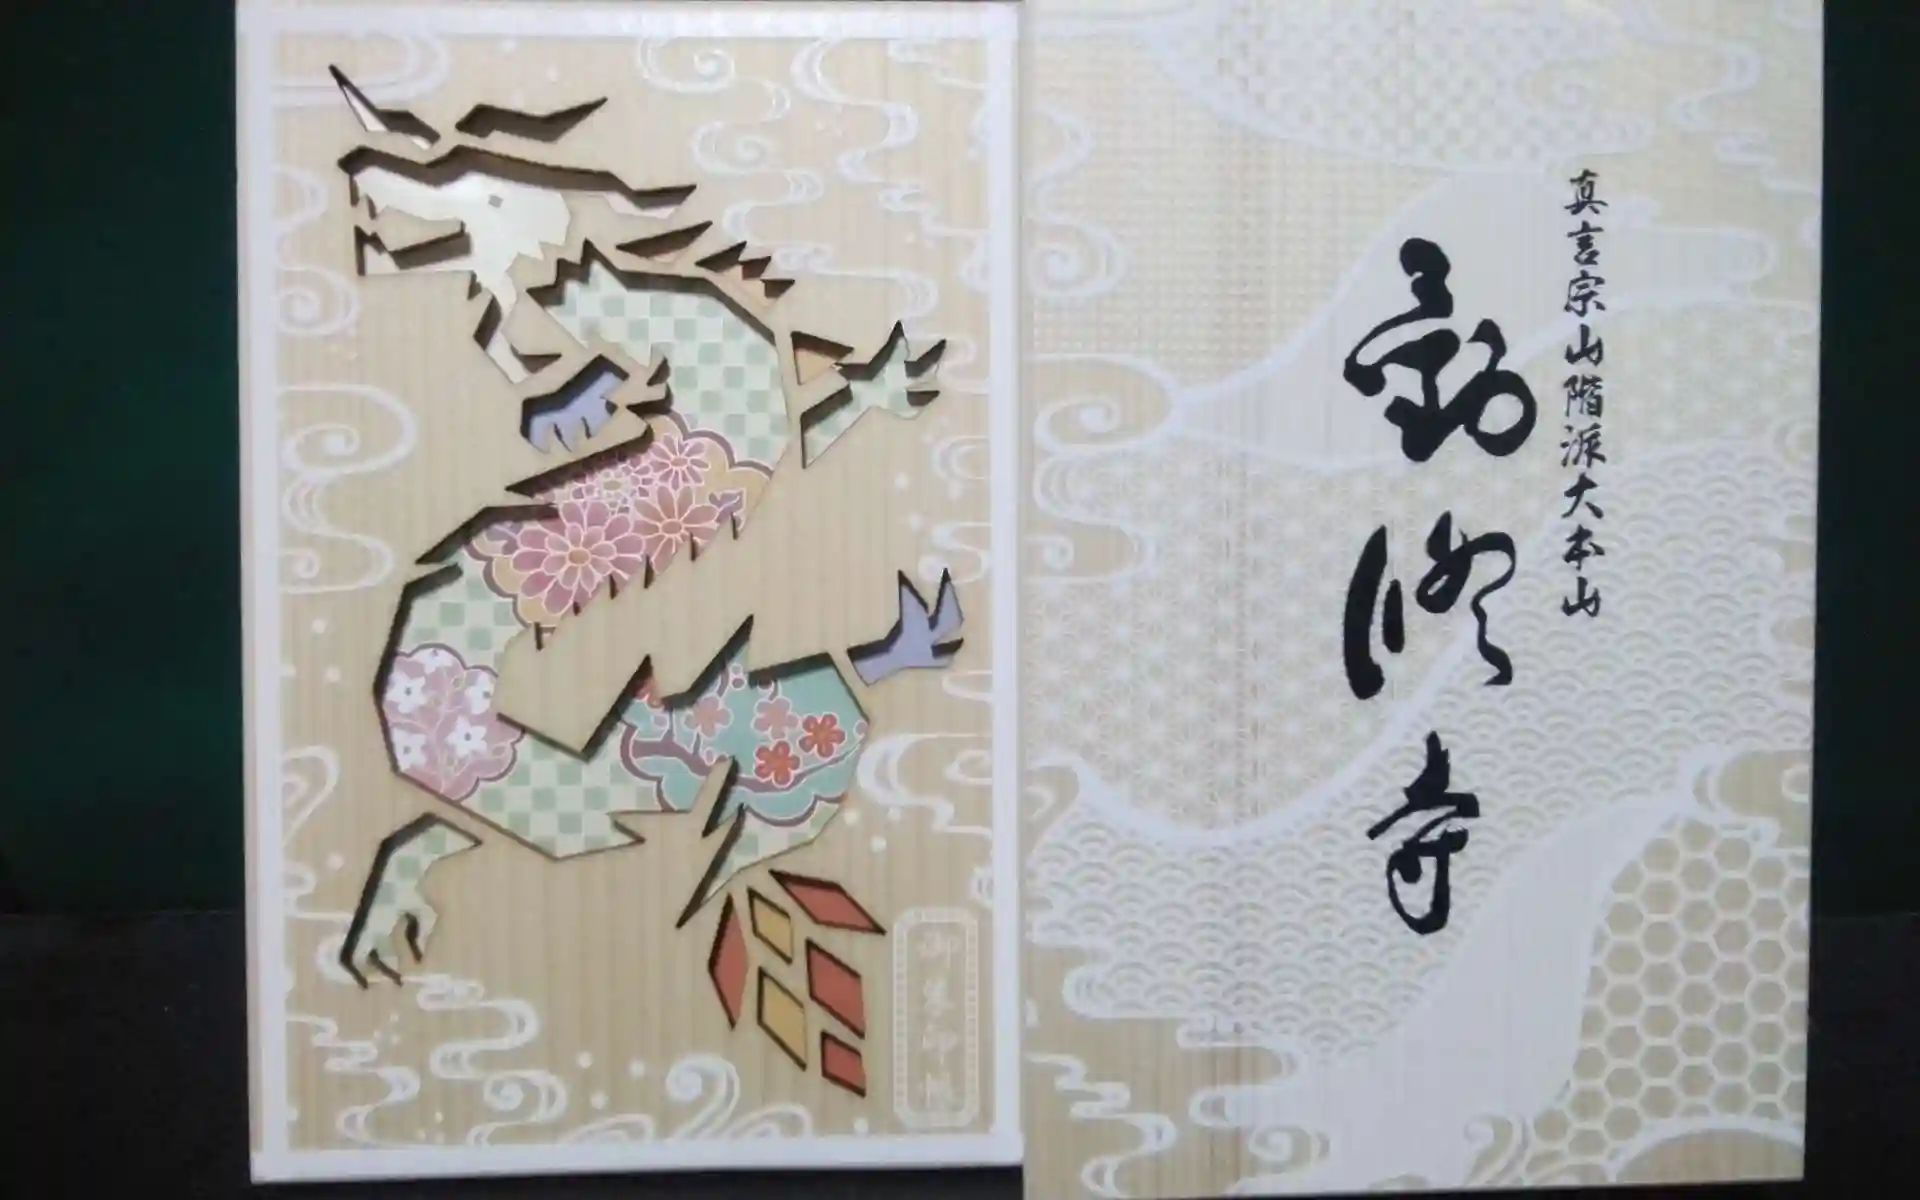 真言宗山階派大本山
勧修寺
御朱印帳